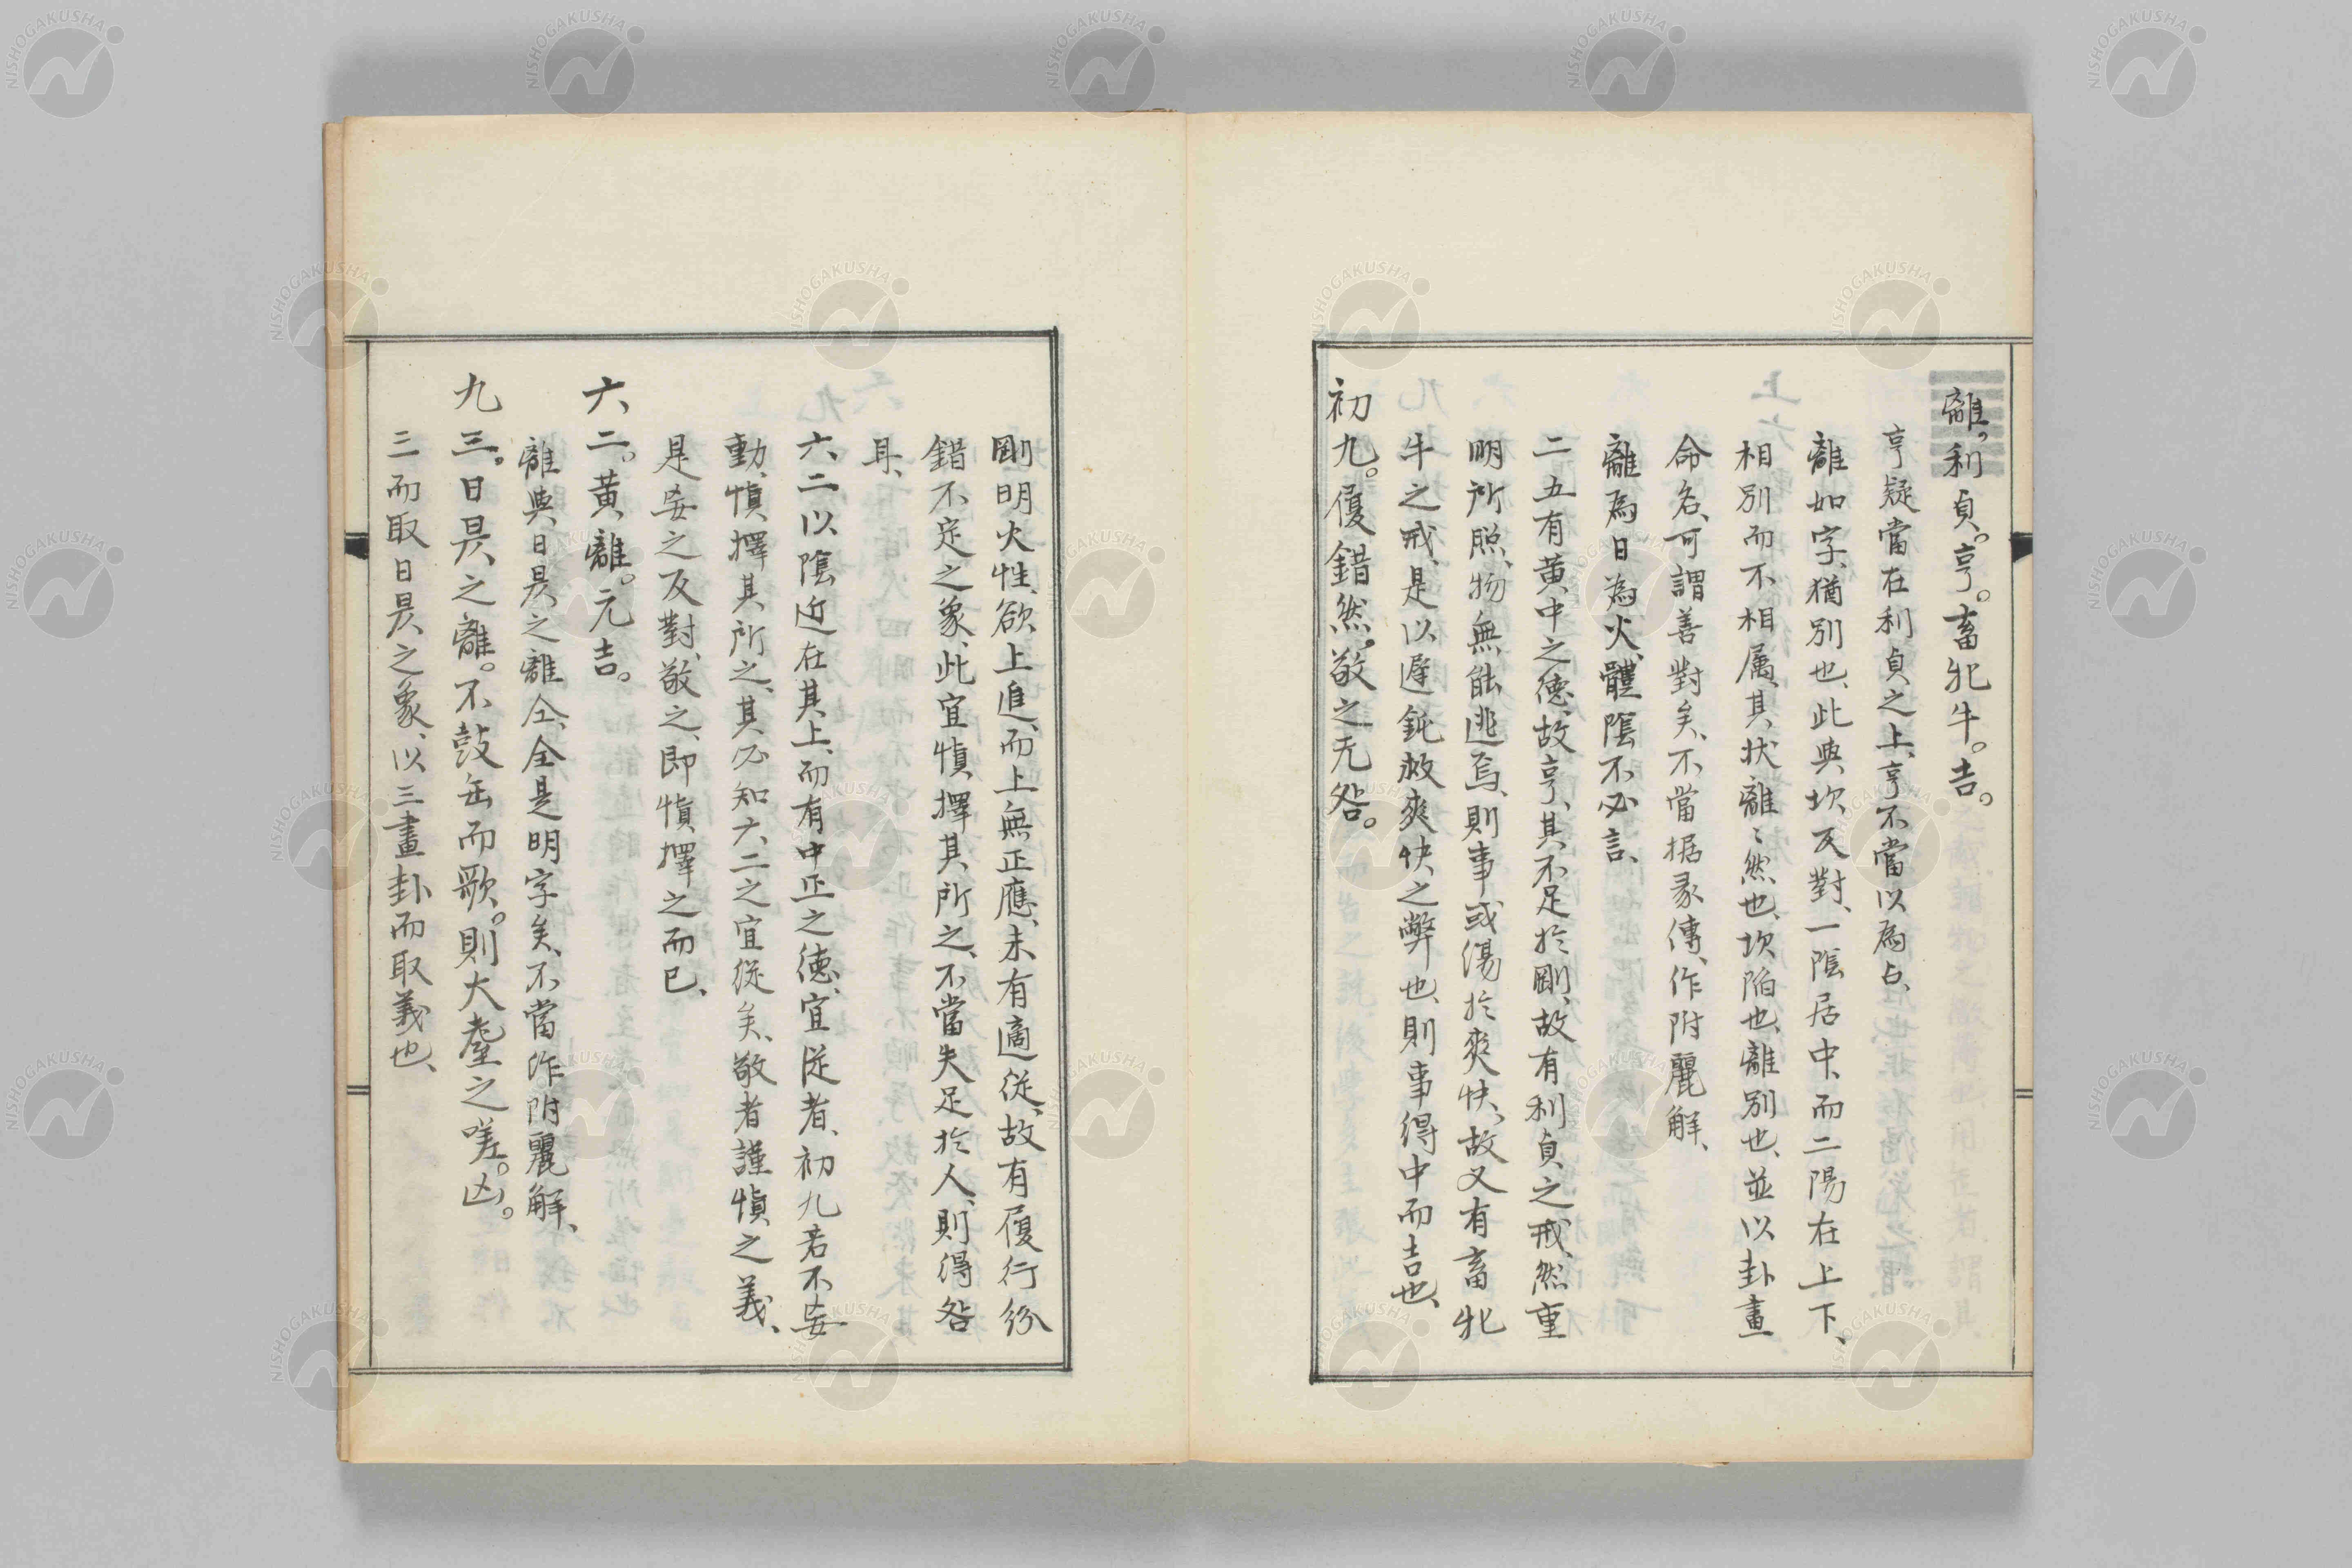 離。利貞。亨。畜牝牛。吉。
亨疑當在利貞之上、亨不當以為占、
離如字、猶別也、此與坎反對、一陰居中、而二陽在上下、
相別而不相属、其狀離〻然也、坎陷也、離別也、並以卦畫
命名、可謂善對矣、不當据彖傳、作附麗解、
離為日為火、體陰不必言、
二五有黄中之德、故亨、其不足於剛、故有利貞之戒、然重
明所照、物無能逃焉、則事或傷於爽快、故又有畜牝
牛之戒、是以遲鈍救爽快之弊也、則事得中而吉也、
初九。履錯然。敬之无咎。
剛明火性、欲上進、而上無正應、未有適從、故有履行紛
錯不定之象、此宜慎擇其所之、不當失足於人、則得咎
耳、
六二以陰近在其上、而有中正之德、宜從者、初九若不妄
動、慎擇其所之、其必知六二之宜從矣、敬者謹慎之義、
是妄之反對、敬之、即慎擇之而已、
六二。黄離。元吉。
離與日昃之離仝、仝是明字矣、不當作附麗解、
九三。日昃之離。不鼓缶而歌。則大耋之嗟。凶。
三而取日昃之象、以三畫卦而取義也、
NISHOGAKUSHA